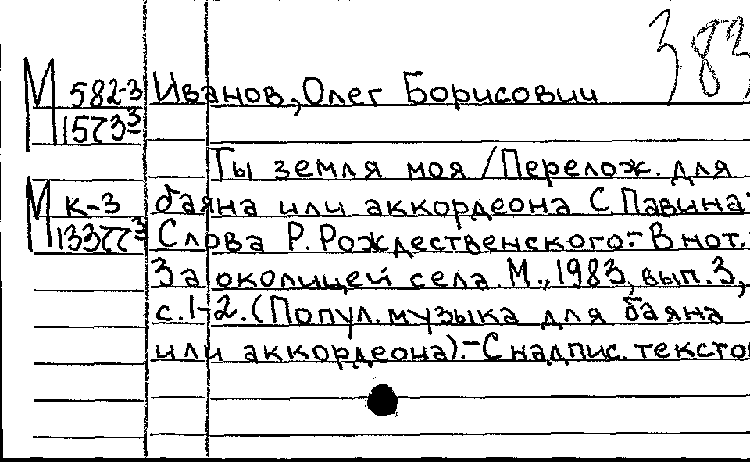 383
М 582-3 Иванов, Олег Борисович
1573 3
Ты земля моя / Перелож. для
М к-3 баяна или аккордеона С. Павина.
13377 3 Слова Р. Рождественского.- В нот.:
За околицей села. М., 1983, вып. 3,
с. 1-2. (Попул. музыка для баяна
или аккордеона).- С надпис. тексто